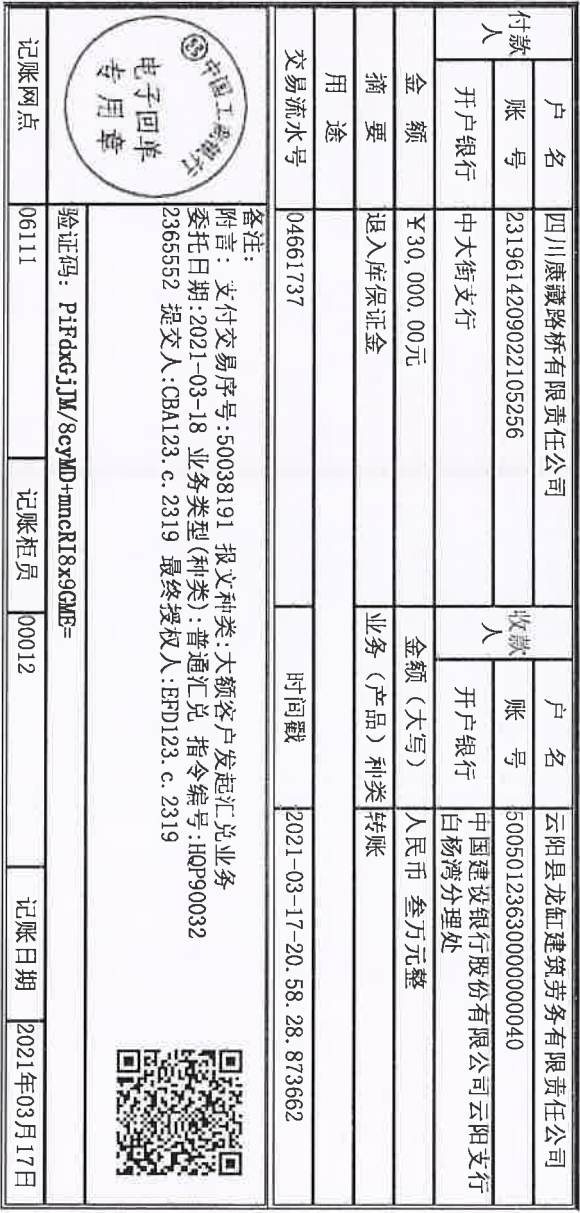 付款人 户 名 四川康藏路桥有限责任公司 收款人 户 名 云阳县龙缸建筑劳务有限责任公司
账 号 2319614209022105256 账 号 50050123630000000040
开户银行 中大街支行 开户银行 中国建设银行股份有限公司云阳支行
白杨湾分理处
金 额 ¥30,000.00元 金额（大写） 人民币 叁万元整
摘 要 退入库保证金 业务（产品）种类 转账
用 途
交易流水号 04661737 时间戳 2021-03-17-20.58.28.873662
中国工商银行
电子回单
专用章
备注:
附言: 支付交易序号:50038191 报文种类:大额客户发起汇兑业务
委托日期:2021-03-18 业务类型(种类):普通汇兑 指令编号:HQP90032
2365552 提交人:CBA123.c.2319 最终授权人:EFD123.c.2319
验证码: PiFdxGjJM/8cyMD+mncRI8x9GME=
记账网点 06111 记账柜员 00012 记账日期 2021年03月17日